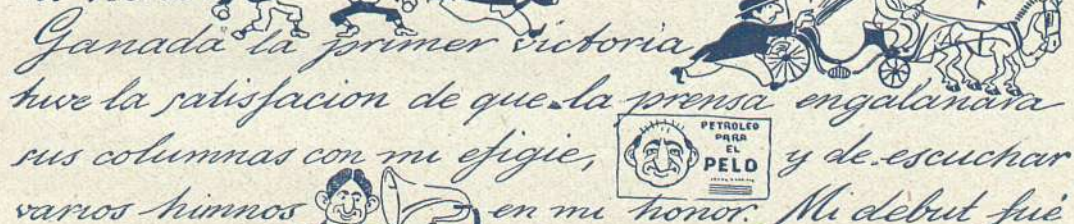 Ganada la primer victoria
tuve la satisfacion de que la prensa engalanara
sus columnas con mi efigie,
PETROLEO
PARA
EL
PELO
y de escuchar
varios himnos en mi honor. Mi debut fué